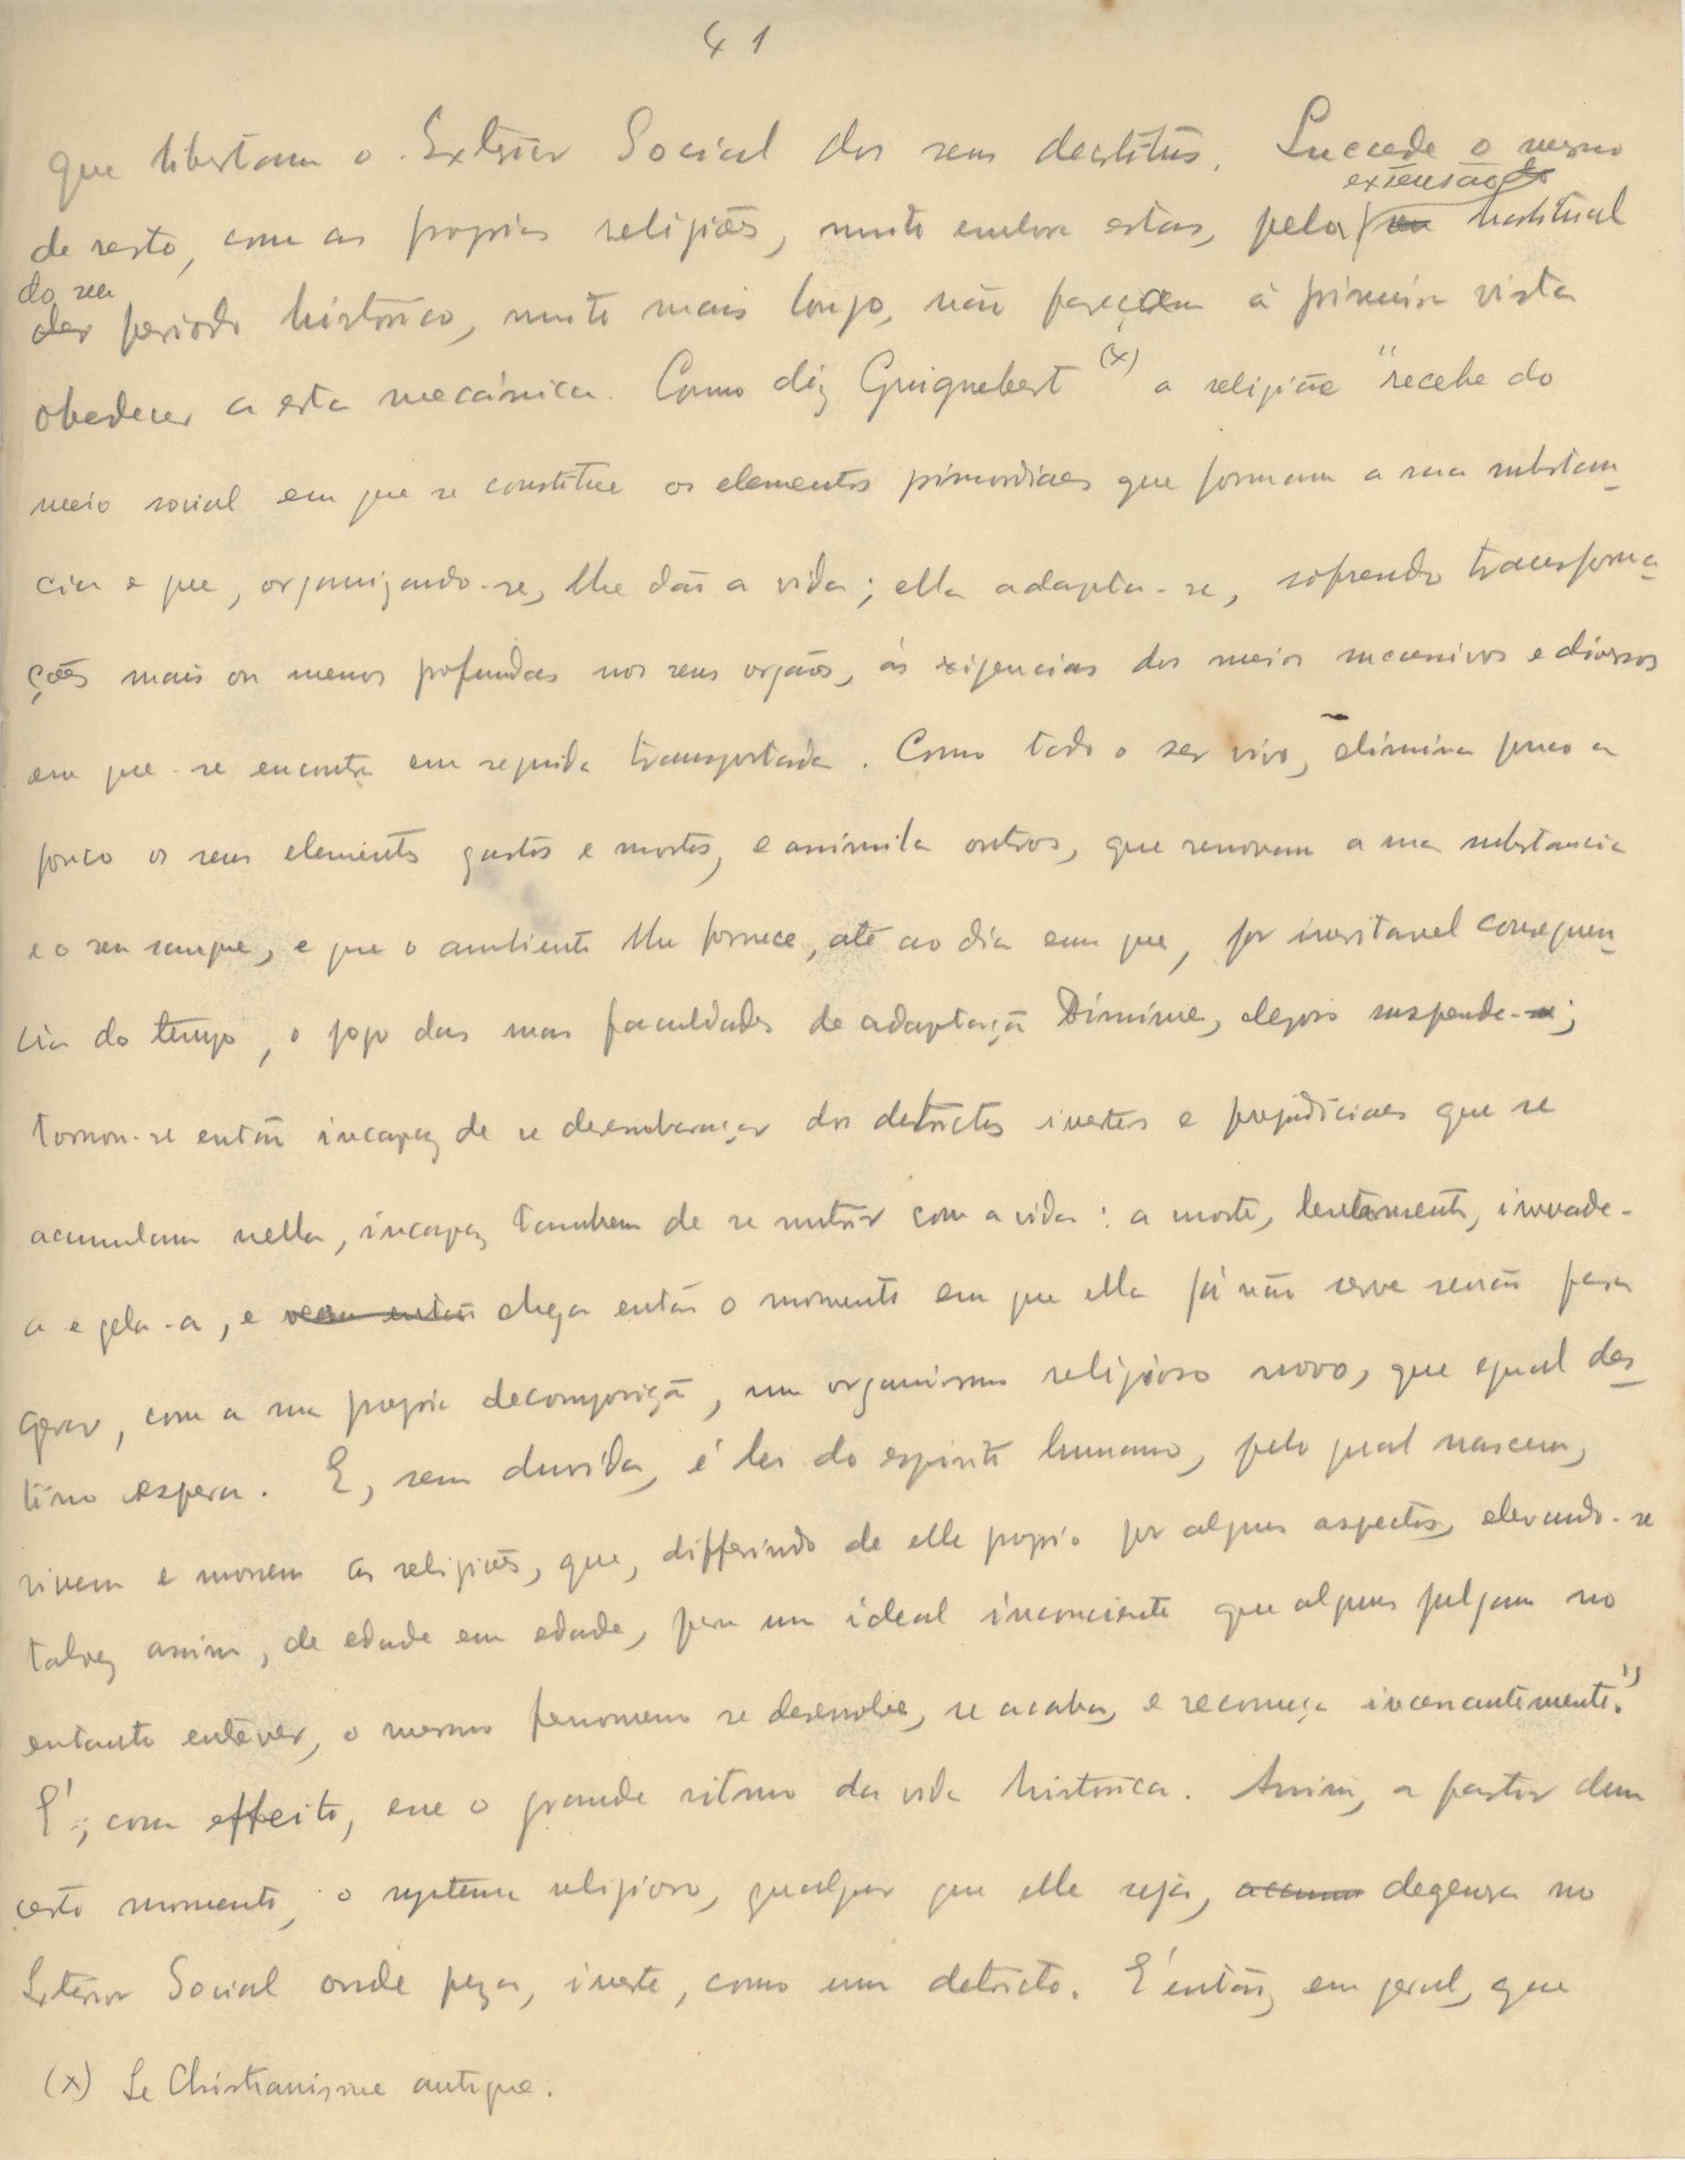 41
que libertam o Exterior Social dos seus destrictos. Succede o mesmo
extensão
de resto, com as proprias religiões, muito embora estas, pela habitual
do seu
periodo historico, muito mais longo, não pareçam á primeira vista
obedecer a esta mecánica. Como diz Guignebert (x) a religião "recebe do
meio social em que se constitue os elementos primordiaes que formam a sua substan-
cia e que, organizando-se, lhe dão a vida; ella adapta-se, sofrendo transforma-
ções mais ou menos profundas nos seus orgãos, ás exigencias dos meios successivos e diversos
em que se encontra em seguida transportada. Como todo o ser vivo, elimina pouco a
pouco os seus elementos gastos e mortos, e assimila outros, que renovam a sua substancia
e o seu sangue, e que o ambiente lhe fornece, até ao dia em que, por inevitavel consequen-
cia do tempo, o jogo das suas faculdades de adaptação diminue, depois suspende-se;
tornou-se então incapaz de se desembaraçar dos detrictos inertes e prejudiciaes que se
acumulam nella, incapaz tambem de se nutrir com a vida: a morte, lentamente, invade-
a e gela-a, e vem então chega então o momento em que ella já não serve senão para
gerar, com a sua propria decomposição, um organismo religioso novo, que egual des-
tino espera. E, sem duvida, é lei do espirito humano, pelo qual nascem,
vivem e morrem as religiões, que, differindo de elle proprio por alguns aspectos, elevando-se
talvez assim, de edade em edade, para um ideal inconciente que alguns julgam no
entanto entever, o mesmo fenomeno se desenvolve, se acaba, e recomeça incessantemente."
É, com effeito, esse o grande ritmo da vida historica. Assim, a partir dum
certo momento, o systema religioso, qualquer que elle seja, degenera no
Exterior Social onde peza, inerte, como um detricto. É então, em geral, que
(x) Le Christianisme antique.